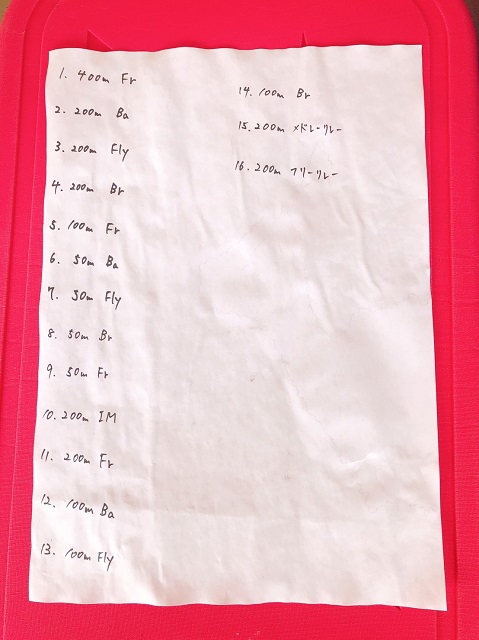 1. 400m Fr
2. 200m Ba
3. 200m Fly
4. 200m Br
5. 100m Fr
6. 50m Ba
7. 50m Fly
8. 50m Br
9. 50m Fr
10. 200m IM
11. 200m Fr
12. 100m Ba
13. 100m Fly
14. 100m Br
15. 200m メドレーリレー
16. 200m フリーリレー